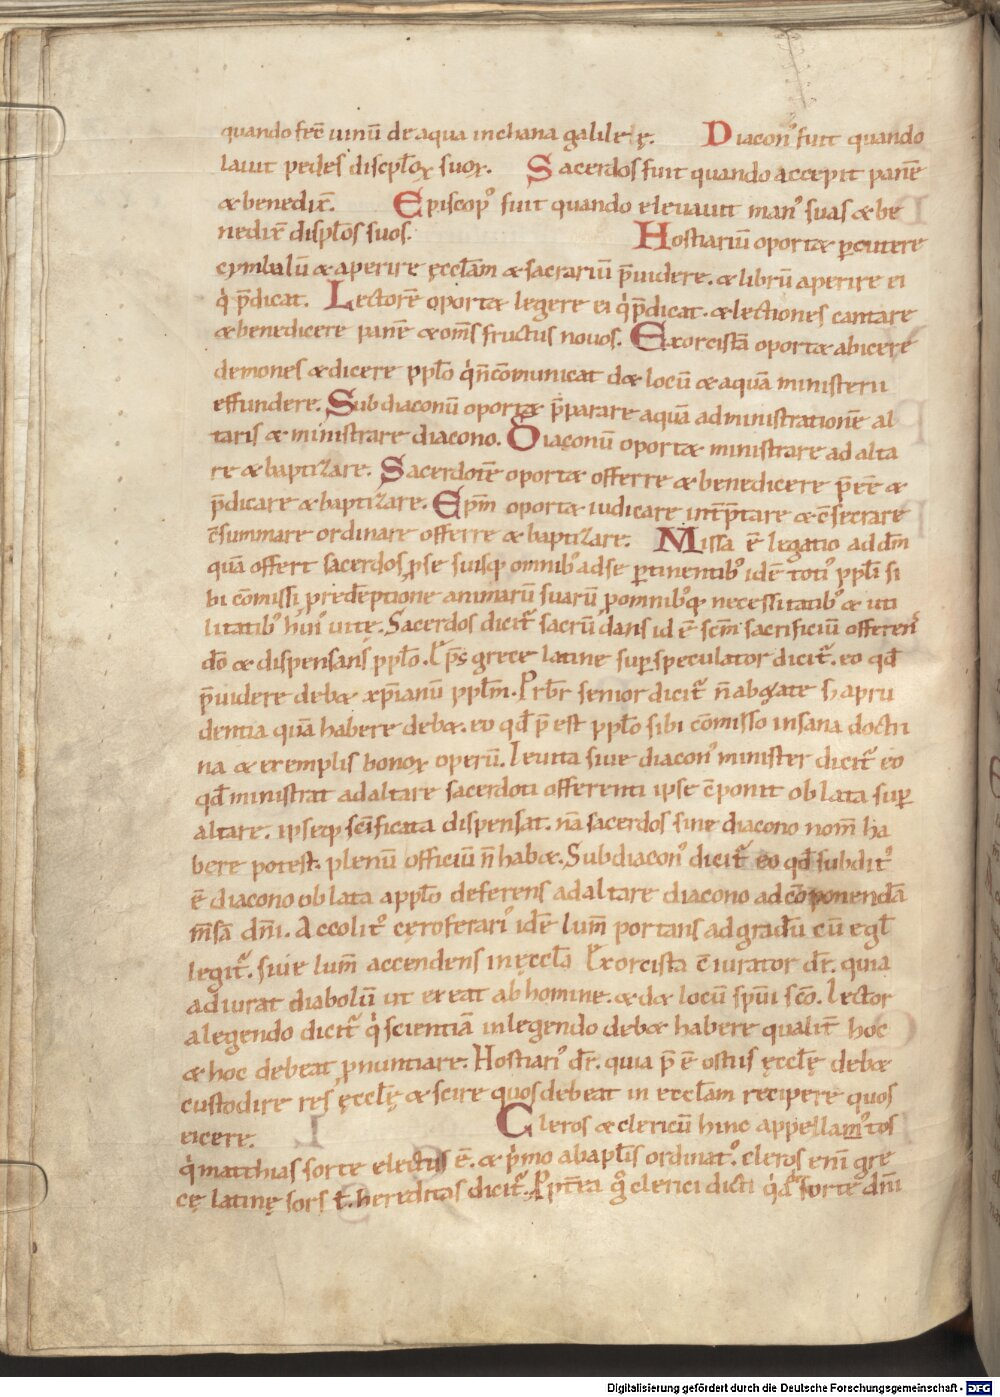 quando fec̄ uinū de aqua in chana galileę. Diacon᷒ fuit quando
lauit pedes discipl̄oꝝ suoꝝ. Sacerdos fuit quando accepit panē
& benedix̄. Episcop᷒ fuit quando eleuauit man᷒ suas & be
nedix̄ displ̄os suos. Hostiariū oport& ꝑcutere
cymbalū & aperire ęccl̄am & sacrariū p̄uidere. & librū aperire ei
q̇ p̄dicat. Lectorē oport& legere ei q̇ p̄dicat. & lectiones cantare
& benedicere panē & om̄s fructus nouos. Exorcistā oport& abicere
demones & dicere ppl̄o q̇ n̄ cōmunicat d& locū & aquā ministerii
effundere. Subdiaconū oport& p̄parare aquā ad ministrationē al
taris & ministrare diacono. Diaconū oport& ministrare ad alta
re & baptizare. Sacerdotē oport& offerre & benedicere p̄eē &
p̄dicare & baptizare. Ep̄m oport& iudicare int̄p̄tare & c̄secrare
c̄summare ordinare offerre & baptizare. Missa ē legatio ad dm̄
quā offert sacerdos ꝓ se suisq; omnib᷒ ad se ꝑtinentib᷒ idē toti᷒ ppl̄i si
bi cōmissi ꝓ redēptione animarū suarū ꝓ omnib᷒q; necessitatib᷒ & uti
litatib᷒ hui᷒ uite. Sacerdos dicit᷑ sacrū dans id ē scm̄ sacrificiū offeren
do & dispensans ppl̄o. Ep̄s grece latine suꝑspeculator dicit᷑. eo qd̄
p̄uidere deb& xp̄ianū ppl̄m. Prb̄r senior dicit᷑ n̄ ab ętate s; a pru
dentia quā habere deb&. eo qd̄ p̄est ppl̄o sibi cōmisso in sana doctri
na & exemplis bonoꝝ operū. Leuita siue diacon᷒ minister dicit᷑ eo
qd̄ ministrat ad altare sacerdoti offerenti ipse c̄ponit oblata suꝑ
altare. ipseq; scīficata dispensat. nā sacerdos sine diacono nom̄ ha
bere potest. plenū officiū n̄ hab&. Subdiacon᷒ dicit᷑ eo qd̄ subdit᷒
ē diacono oblata a ppl̄o deferens ad altare diacono ad cōponendā
m̄sā dn̄i. Accolit᷒ ceroferari᷒ idē lum̄ portans ad gradū cū egl̄
legit᷑. siue lum̄ accendens in ęccl̄a Exorcista c̄iurator dr̄. quia
adiurat diabolū ut exeat ab homine. & d& locū sp̄ui sc̄o. Lector
a legendo dicit᷑ q̇ scientiā in legendo deb& habere qualit̄ hoc
& hoc debeat ꝓnuntiare. Hostiari᷒ dr̄. quia p̄ē ostiis ęccl̄ę deb&
custodire res ęccl̄ę & scire quos debeat in eccl̄am recipere quos
eicere. Cleros & clericū hinc appellam᷒ tos
q̇ matthias sorte electus ē. & ṗmo ab apl̄is ordinat᷒. cleros eni̅ gre
cę latinę sors t̄ hereditas dicit᷑. Ꝓpt̄ea g̊ clerici dicti q̇a d᷒ sorte dn̄i
Digitalisierung gefördert durch die Deutsche Forschungsgemeinschaft - DFG